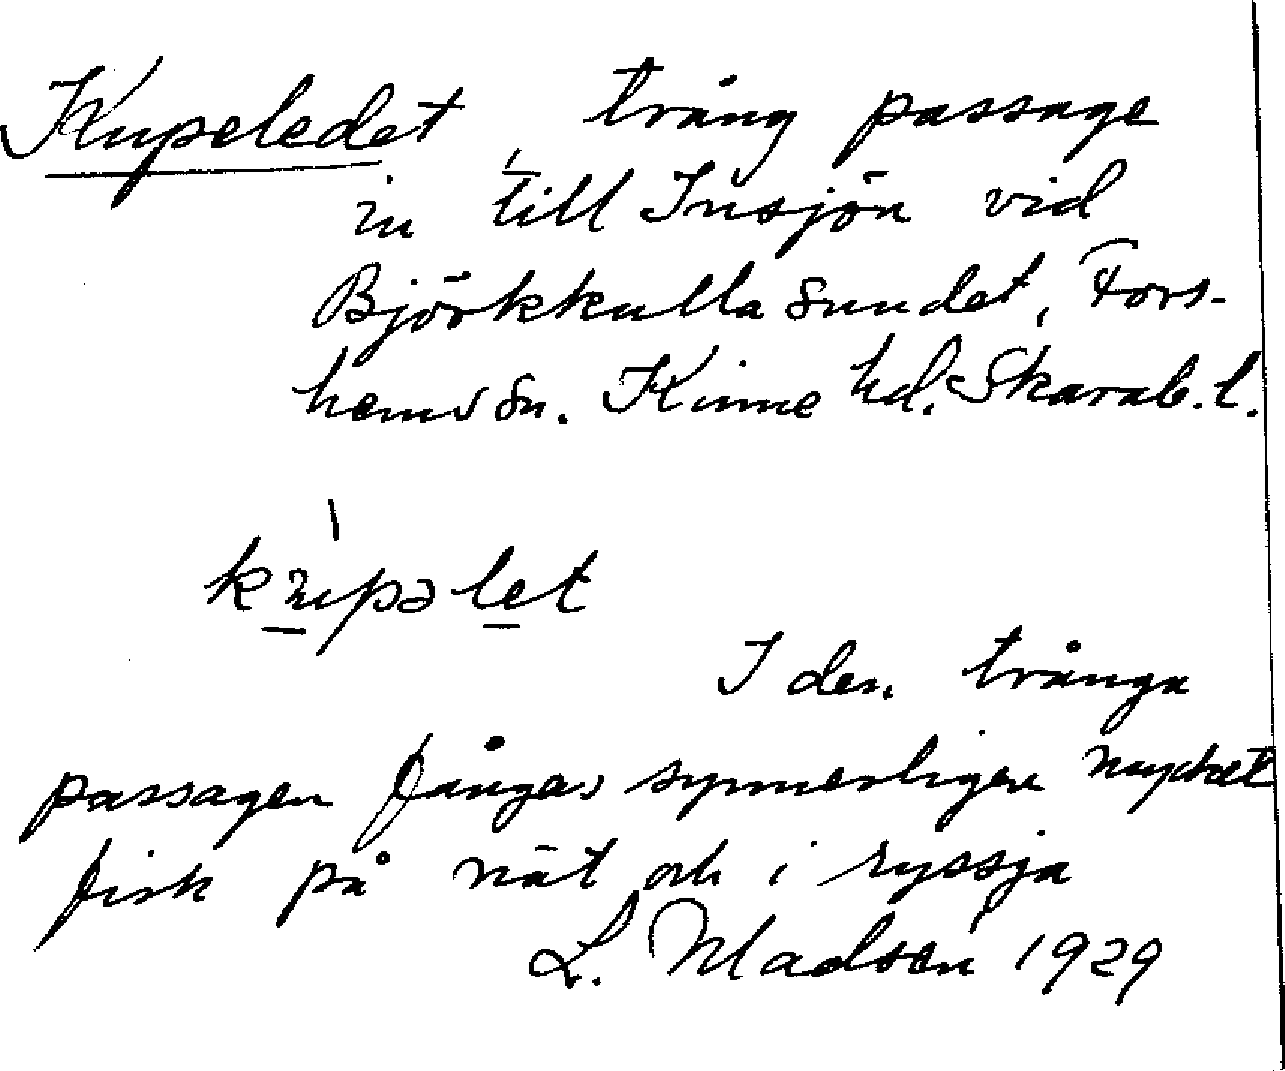 Kupeledet, trång passage
in till Insjön vid
Björkkulla sundet, Fors-
hems sn. Kinne hd. Skarab. l.
kupəlet
I den trånga
passagen fångas synnerligen mycket
fisk på nät och i ryssja
L. Madsen 1929